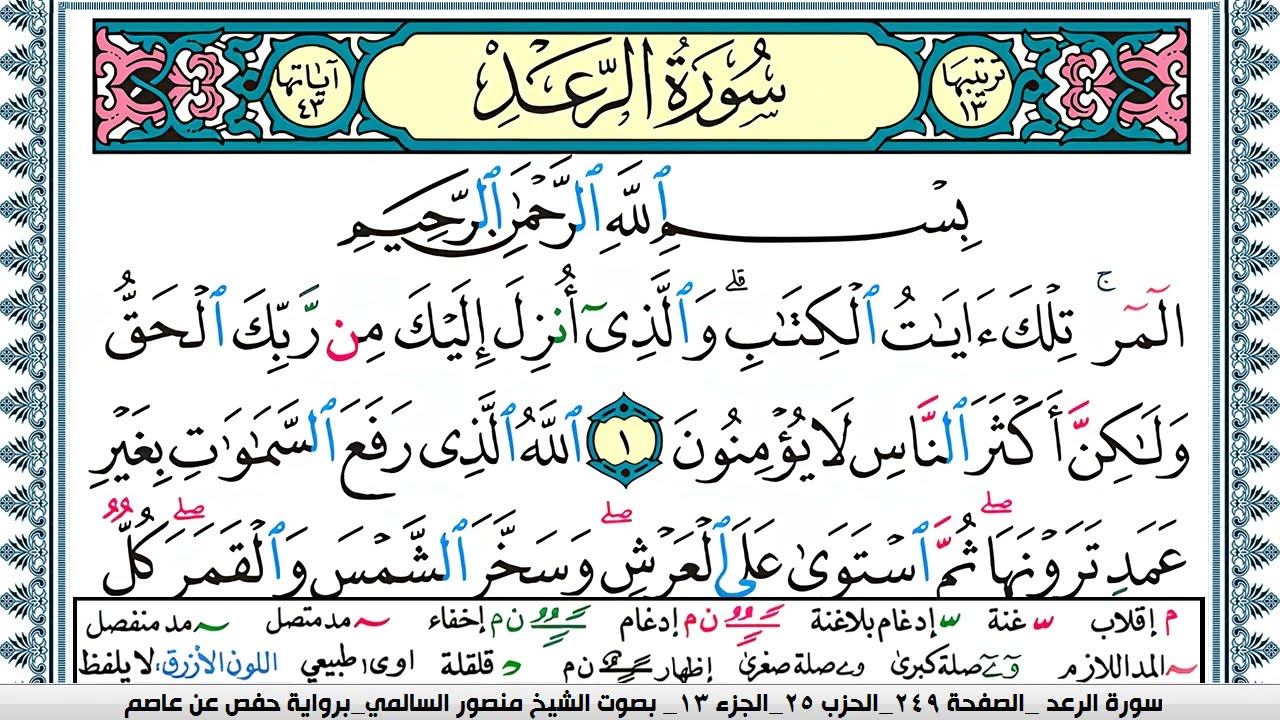 ترتيبها ١٣ سُورَةُ الرَّعْدِ آياتها ٤٣
بِسْمِ ٱللَّهِ ٱلرَّحْمَٰنِ ٱلرَّحِيمِ
الٓمٓر ۚ تِلْكَ ءَايَٰتُ ٱلْكِتَٰبِ ۗ وَٱلَّذِىٓ أُنزِلَ إِلَيْكَ مِن رَّبِّكَ ٱلْحَقُّ
وَلَٰكِنَّ أَكْثَرَ ٱلنَّاسِ لَا يُؤْمِنُونَ ١ ٱللَّهُ ٱلَّذِى رَفَعَ ٱلسَّمَٰوَٰتِ بِغَيْرِ
عَمَدٍ تَرَوْنَهَا ۖ ثُمَّ ٱسْتَوَىٰ عَلَى ٱلْعَرْشِ ۖ وَسَخَّرَ ٱلشَّمْسَ وَٱلْقَمَرَ ۖ كُلٌّ
م إقلاب س غنة س إدغام بلاغنة ن م إدغام ن م إخفاء مد متصل مد منفصل
المد اللازم و ے صلة كبرى و ے صلة صغرى إظهار ن م د قلقلة اوى طبيعي اللون الأزرق، لا يلفظ
سورة الرعد _الصفحة ٢٤٩_الحزب ٢٥_الجزء ١٣_ بصوت الشيخ منصور السالمي_برواية حفص عن عاصم